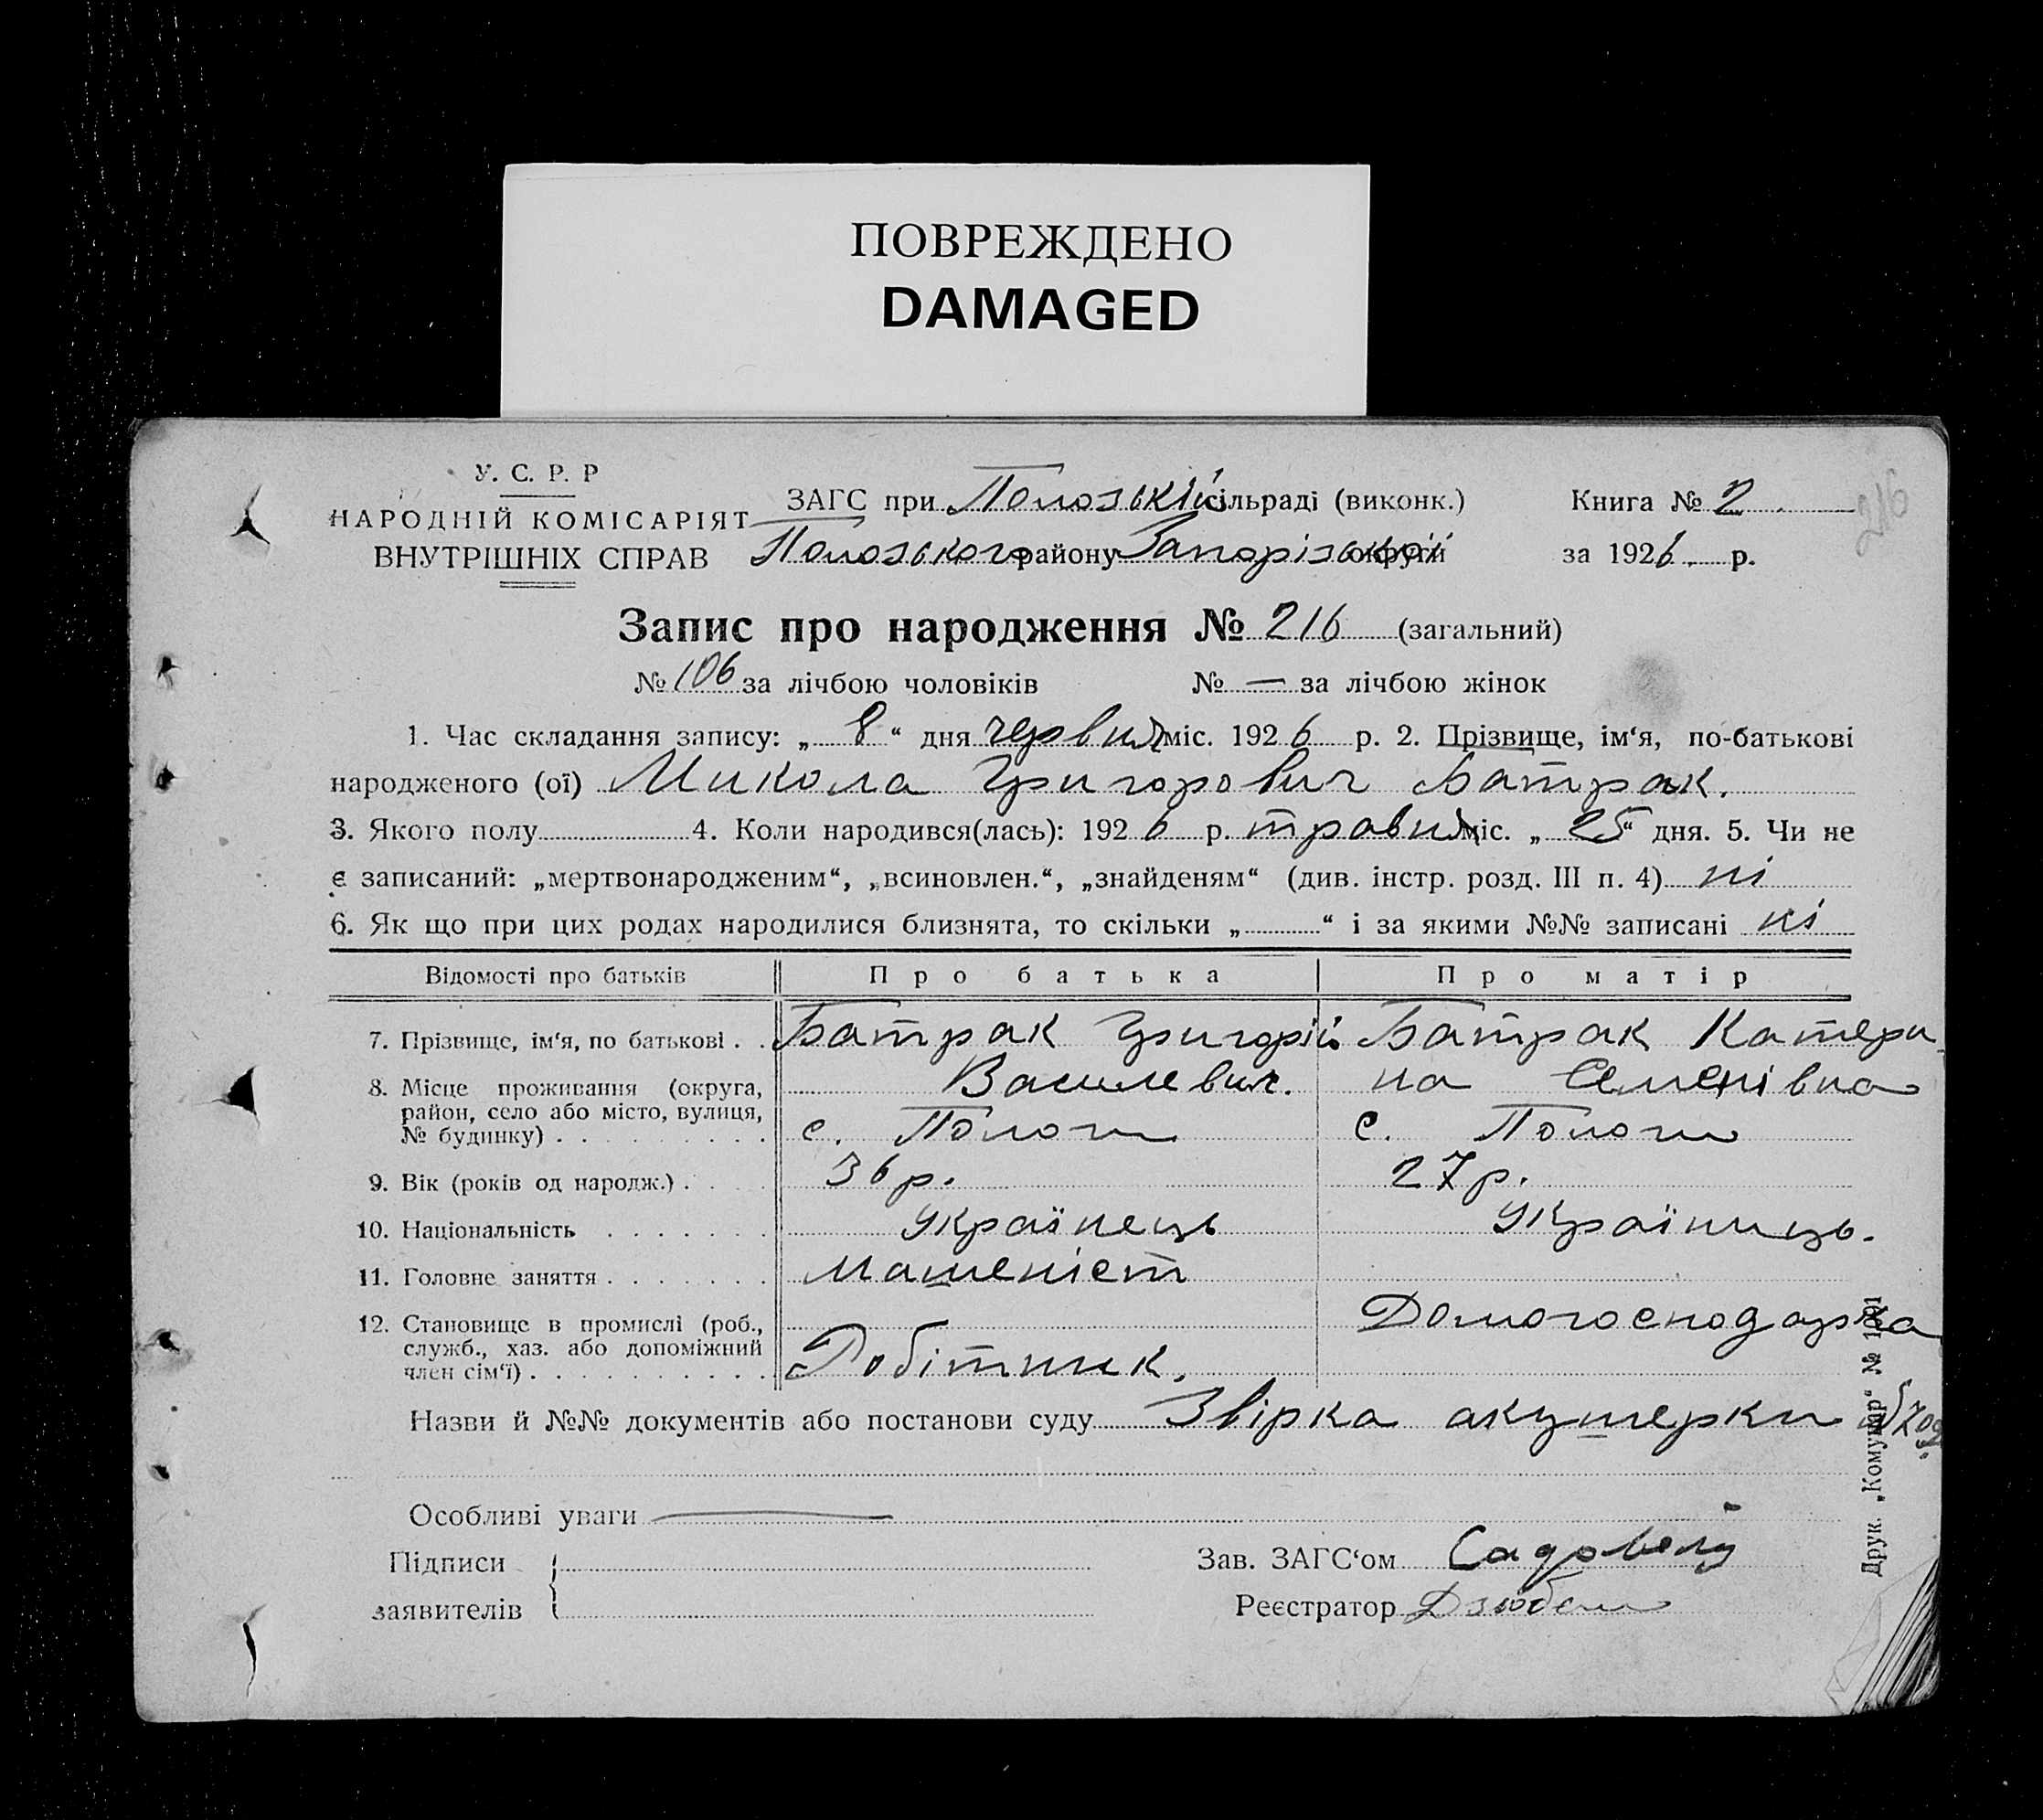 ПОВРЕЖДЕНО
DAMAGED
216
У. С. Р. Р
НАРОДНІЙ КОМІСАРІЯТ
ВНУТРІШНІХ СПРАВ
ЗАГС при Полозській сільраді (виконк.) Книга № 2
Полозського району Запорізської округи за 1926 р.
Запис про народження № 216 (загальний)
№ 106 за лічбою чоловіків № — за лічбою жінок
1. Час складання запису: „ 8 “ дня червня міс. 1926 р. 2. Прізвище, ім‘я, по-батькові
народженого (ої) Микола Григорович Батрак.
3. Якого полу 4. Коли народився(лась): 1926 р. травня міс. „ 25 “ дня. 5. Чи не
є записаний: „мертвонародженим“, „всиновлен.“, „знайденям“ (див. інстр. розд. III п. 4) ні
6. Як що при цих родах народилися близнята, то скільки „ “ і за якими №№ записані ні
Відомості про батьків Про батька Про матір
7. Прізвище, ім‘я, по батькові . . Батрак Григорій Батрак Катери-
Василевич. на Семенівна
8. Місце проживання (округа,
район, село або місто, вулиця,
№ будинку) . . . . . . . . . с. Пологи с. Пологи
9. Вік (років од народж.) . . . 36 р. 27 р.
10. Національність . . . . . . . Українець Україниць.
11. Головне заняття . . . . . . . Машеніст
12. Становище в промислі (роб.,
служб., хаз. або допоміжний
член сім‘ї) . . . . . . . . . . Робітник. Домогосподарка
Назви й №№ документів або постанови суду Звірка акушерки
Особливі уваги —
Підписи
заявителів
Зав. ЗАГС‘ом
Реєстратор
Друк. „Комунар“ № 1091